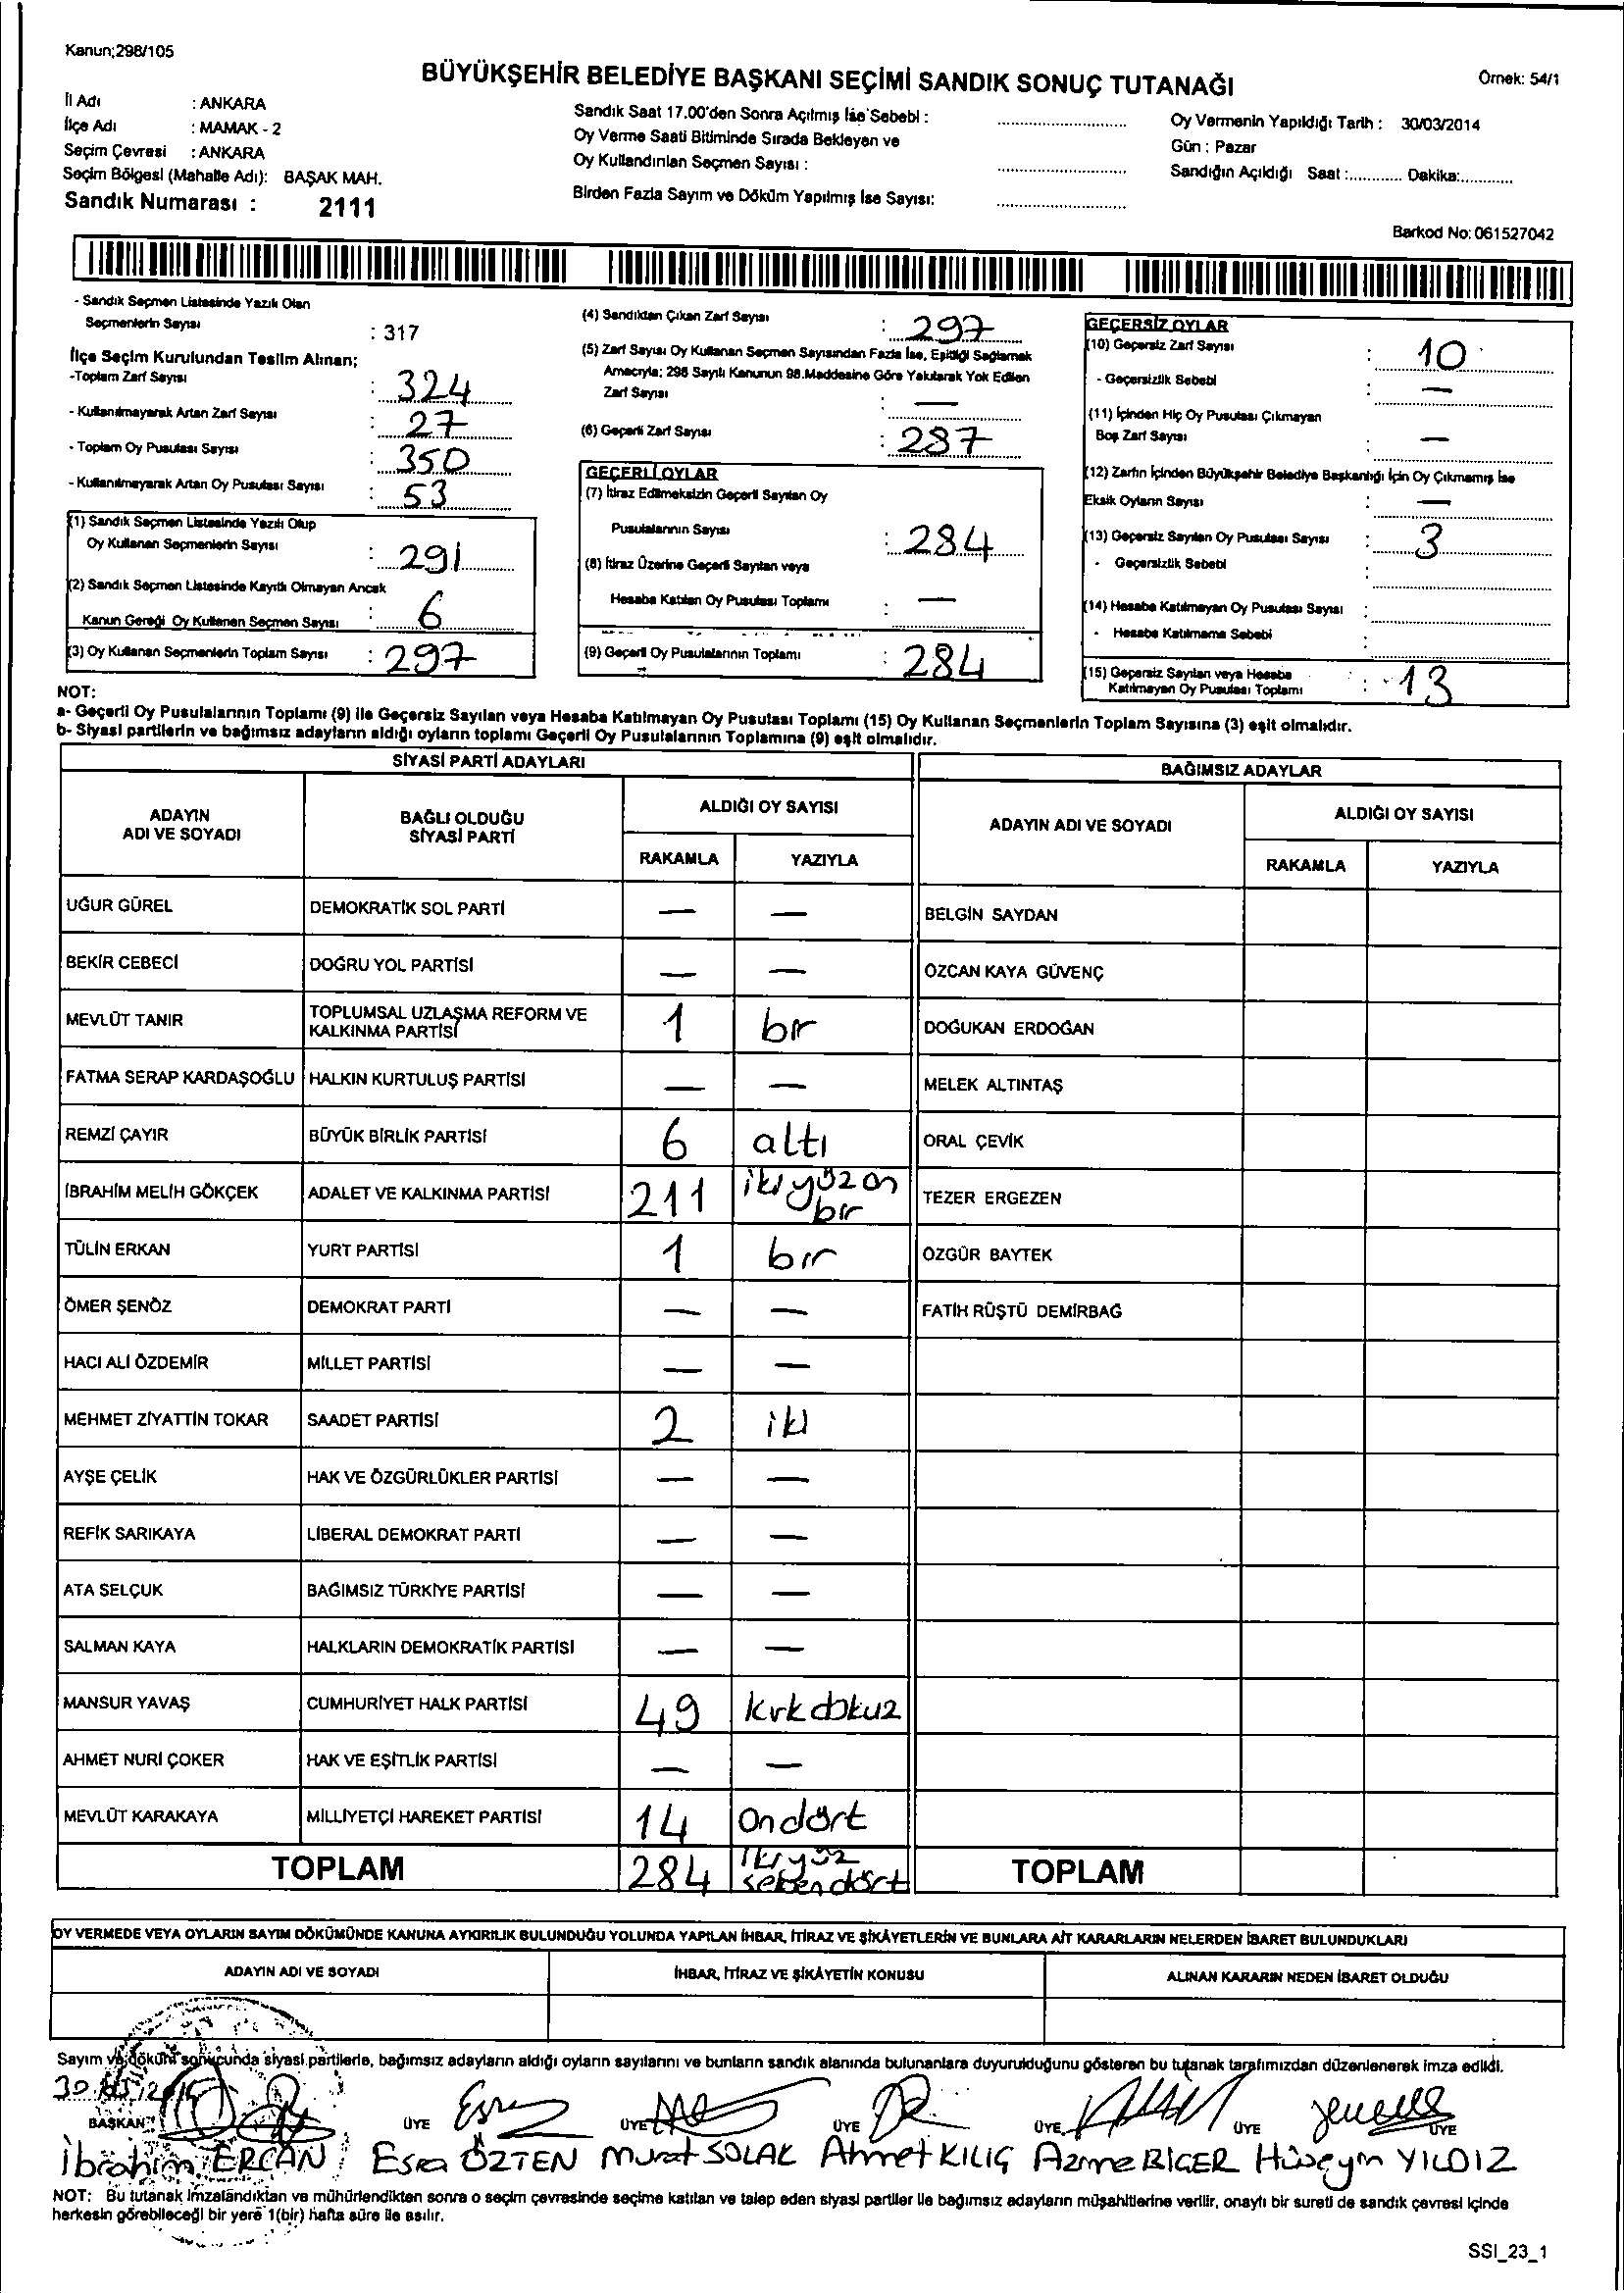 Kanun;298/105
BÜYÜKŞEHİR BELEDİYE BAŞKANI SEÇİMİ SANDIK SONUÇ TUTANAĞI
Örnek: 54/1
İl Adı : ANKARA
İlçe Adı : MAMAK - 2
Seçim Çevresi : ANKARA
Seçim Bölgesi (Mahalle Adı): BAŞAK MAH.
Sandık Numarası : 2111
Sandık Saat 17.00'den Sonra Açılmış İse Sebebi :
Oy Verme Saati Bitiminde Sırada Bekleyen ve
Oy Kullandırılan Seçmen Sayısı :
Birden Fazla Sayım ve Döküm Yapılmış İse Sayısı:
Oy Vermenin Yapıldığı Tarih : 30/03/2014
Gün : Pazar
Sandığın Açıldığı Saat :............ Dakika:............
Barkod No: 061527042
- Sandık Seçmen Listesinde Yazılı Olan
Seçmenlerin Sayısı : 317
İlçe Seçim Kurulundan Teslim Alınan;
-Toplam Zarf Sayısı : 324
- Kullanılmayarak Artan Zarf Sayısı : 27
- Toplam Oy Pusulası Sayısı : 350
- Kullanılmayarak Artan Oy Pusulası Sayısı : 53
(1) Sandık Seçmen Listesinde Yazılı Olup
Oy Kullanan Seçmenlerin Sayısı : 291
(2) Sandık Seçmen Listesinde Kayıtlı Olmayan Ancak
Kanun Gereği Oy Kullanan Seçmen Sayısı : 6
(3) Oy Kullanan Seçmenlerin Toplam Sayısı : 297
(4) Sandıktan Çıkan Zarf Sayısı : 297
(5) Zarf Sayısı Oy Kullanan Seçmen Sayısından Fazla İse, Eşitliği Sağlamak
Amacıyla; 298 Sayılı Kanunun 98.Maddesine Göre Yakılarak Yok Edilen
Zarf Sayısı : —
(6) Geçerli Zarf Sayısı : 287
GEÇERLİ OYLAR
(7) İtiraz Edilmeksizin Geçerli Sayılan Oy
Pusulalarının Sayısı : 284
(8) İtiraz Üzerine Geçerli Sayılan veya
Hesaba Katılan Oy Pusulası Toplamı : —
(9) Geçerli Oy Pusulalarının Toplamı : 284
GEÇERSİZ OYLAR
(10) Geçersiz Zarf Sayısı : 10
- Geçersizlik Sebebi : —
(11) İçinden Hiç Oy Pusulası Çıkmayan
Boş Zarf Sayısı : —
(12) Zarfın İçinden Büyükşehir Belediye Başkanlığı İçin Oy Çıkmamış İse
Eksik Oyların Sayısı : —
(13) Geçersiz Sayılan Oy Pusulası Sayısı : 3
- Geçersizlik Sebebi :
(14) Hesaba Katılmayan Oy Pusulası Sayısı :
- Hesaba Katılmama Sebebi :
(15) Geçersiz Sayılan veya Hesaba
Katılmayan Oy Pusulası Toplamı : 13
NOT:
a- Geçerli Oy Pusulalarının Toplamı (9) ile Geçersiz Sayılan veya Hesaba Katılmayan Oy Pusulası Toplamı (15) Oy Kullanan Seçmenlerin Toplam Sayısına (3) eşit olmalıdır.
b- Siyasi partilerin ve bağımsız adayların aldığı oyların toplamı Geçerli Oy Pusulalarının Toplamına (9) eşit olmalıdır.
SİYASİ PARTİ ADAYLARI
BAĞIMSIZ ADAYLAR
ADAYIN ADI VE SOYADI
BAĞLI OLDUĞU SİYASİ PARTİ
ALDIĞI OY SAYISI
RAKAMLA YAZIYLA
ADAYIN ADI VE SOYADI
ALDIĞI OY SAYISI
RAKAMLA YAZIYLA
UĞUR GÜREL DEMOKRATİK SOL PARTİ — — BELGİN SAYDAN
BEKİR CEBECİ DOĞRU YOL PARTİSİ — — ÖZCAN KAYA GÜVENÇ
MEVLÜT TANIR TOPLUMSAL UZLAŞMA REFORM VE KALKINMA PARTİSİ 1 bir DOĞUKAN ERDOĞAN
FATMA SERAP KARDAŞOĞLU HALKIN KURTULUŞ PARTİSİ — — MELEK ALTINTAŞ
REMZİ ÇAYIR BÜYÜK BİRLİK PARTİSİ 6 altı ORAL ÇEVİK
İBRAHİM MELİH GÖKÇEK ADALET VE KALKINMA PARTİSİ 211 ikiyüzon bir TEZER ERGEZEN
TÜLİN ERKAN YURT PARTİSİ 1 bir ÖZGÜR BAYTEK
ÖMER ŞENÖZ DEMOKRAT PARTİ — — FATİH RÜŞTÜ DEMİRBAĞ
HACI ALİ ÖZDEMİR MİLLET PARTİSİ — —
MEHMET ZİYATTİN TOKAR SAADET PARTİSİ 2 iki
AYŞE ÇELİK HAK VE ÖZGÜRLÜKLER PARTİSİ — —
REFİK SARIKAYA LİBERAL DEMOKRAT PARTİ — —
ATA SELÇUK BAĞIMSIZ TÜRKİYE PARTİSİ — —
SALMAN KAYA HALKLARIN DEMOKRATİK PARTİSİ — —
MANSUR YAVAŞ CUMHURİYET HALK PARTİSİ 49 kırkdokuz
AHMET NURİ ÇOKER HAK VE EŞİTLİK PARTİSİ — —
MEVLÜT KARAKAYA MİLLİYETÇİ HAREKET PARTİSİ 14 Ondört
TOPLAM 284 İkiyüz seksendört TOPLAM
OY VERMEDE VEYA OYLARIN SAYIM DÖKÜMÜNDE KANUNA AYKIRILIK BULUNDUĞU YOLUNDA YAPILAN İHBAR, İTİRAZ VE ŞİKÂYETLERİN VE BUNLARA AİT KARARLARIN NELERDEN İBARET BULUNDUKLARI
ADAYIN ADI VE SOYADI İHBAR, İTİRAZ VE ŞİKÂYETİN KONUSU ALINAN KARARIN NEDEN İBARET OLDUĞU
Sayım ve döküm sonucunda siyasi partilerle, bağımsız adayların aldığı oyların sayılarını ve bunların sandık alanında bulunanlara duyurulduğunu gösteren bu tutanak tarafımızdan düzenlenerek imza edildi.
BAŞKAN ÜYE ÜYE ÜYE ÜYE ÜYE ÜYE
İbrahim ERCAN Esra ÖZTEN Murat SOLAK Ahmet KILIÇ Azme BİÇER Hüseyin YILDIZ
NOT: Bu tutanak imzalandıktan ve mühürlendikten sonra o seçim çevresinde seçime katılan ve talep eden siyasi partiler ile bağımsız adayların müşahitlerine verilir, onaylı bir sureti de sandık çevresi içinde
herkesin görebileceği bir yere 1(bir) hafta süre ile asılır.
SSI_23_1